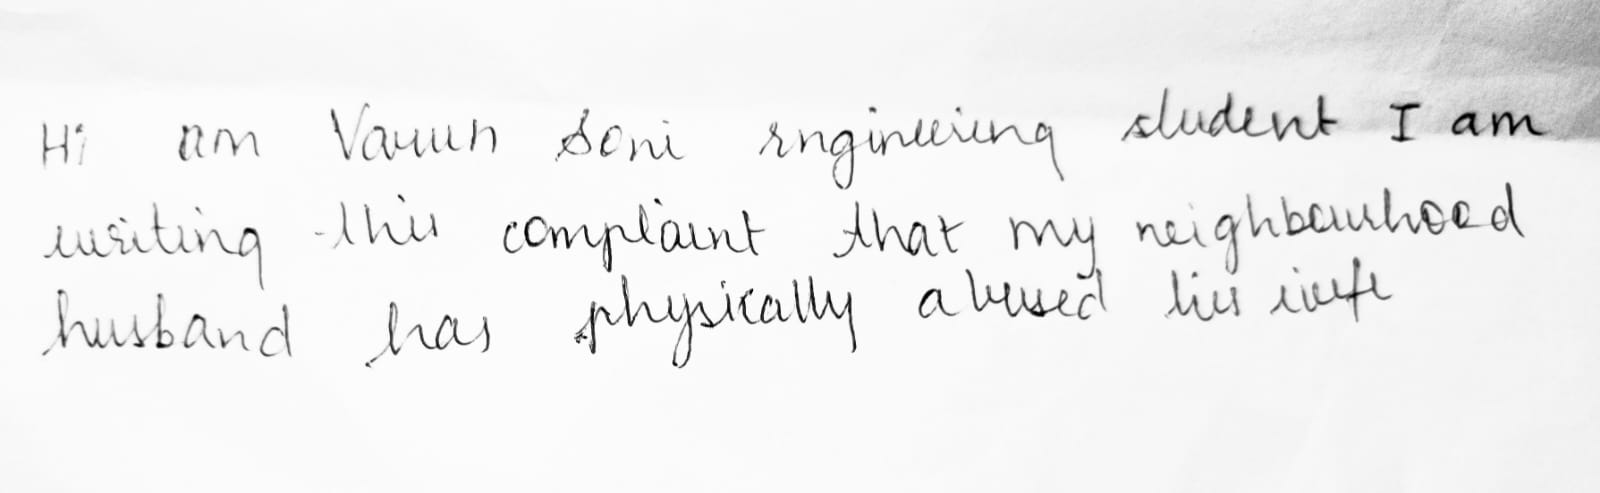 Hi am Varun Soni engineering student I am
writing this complaint that my neighbourhood
husband has physically abused his wife